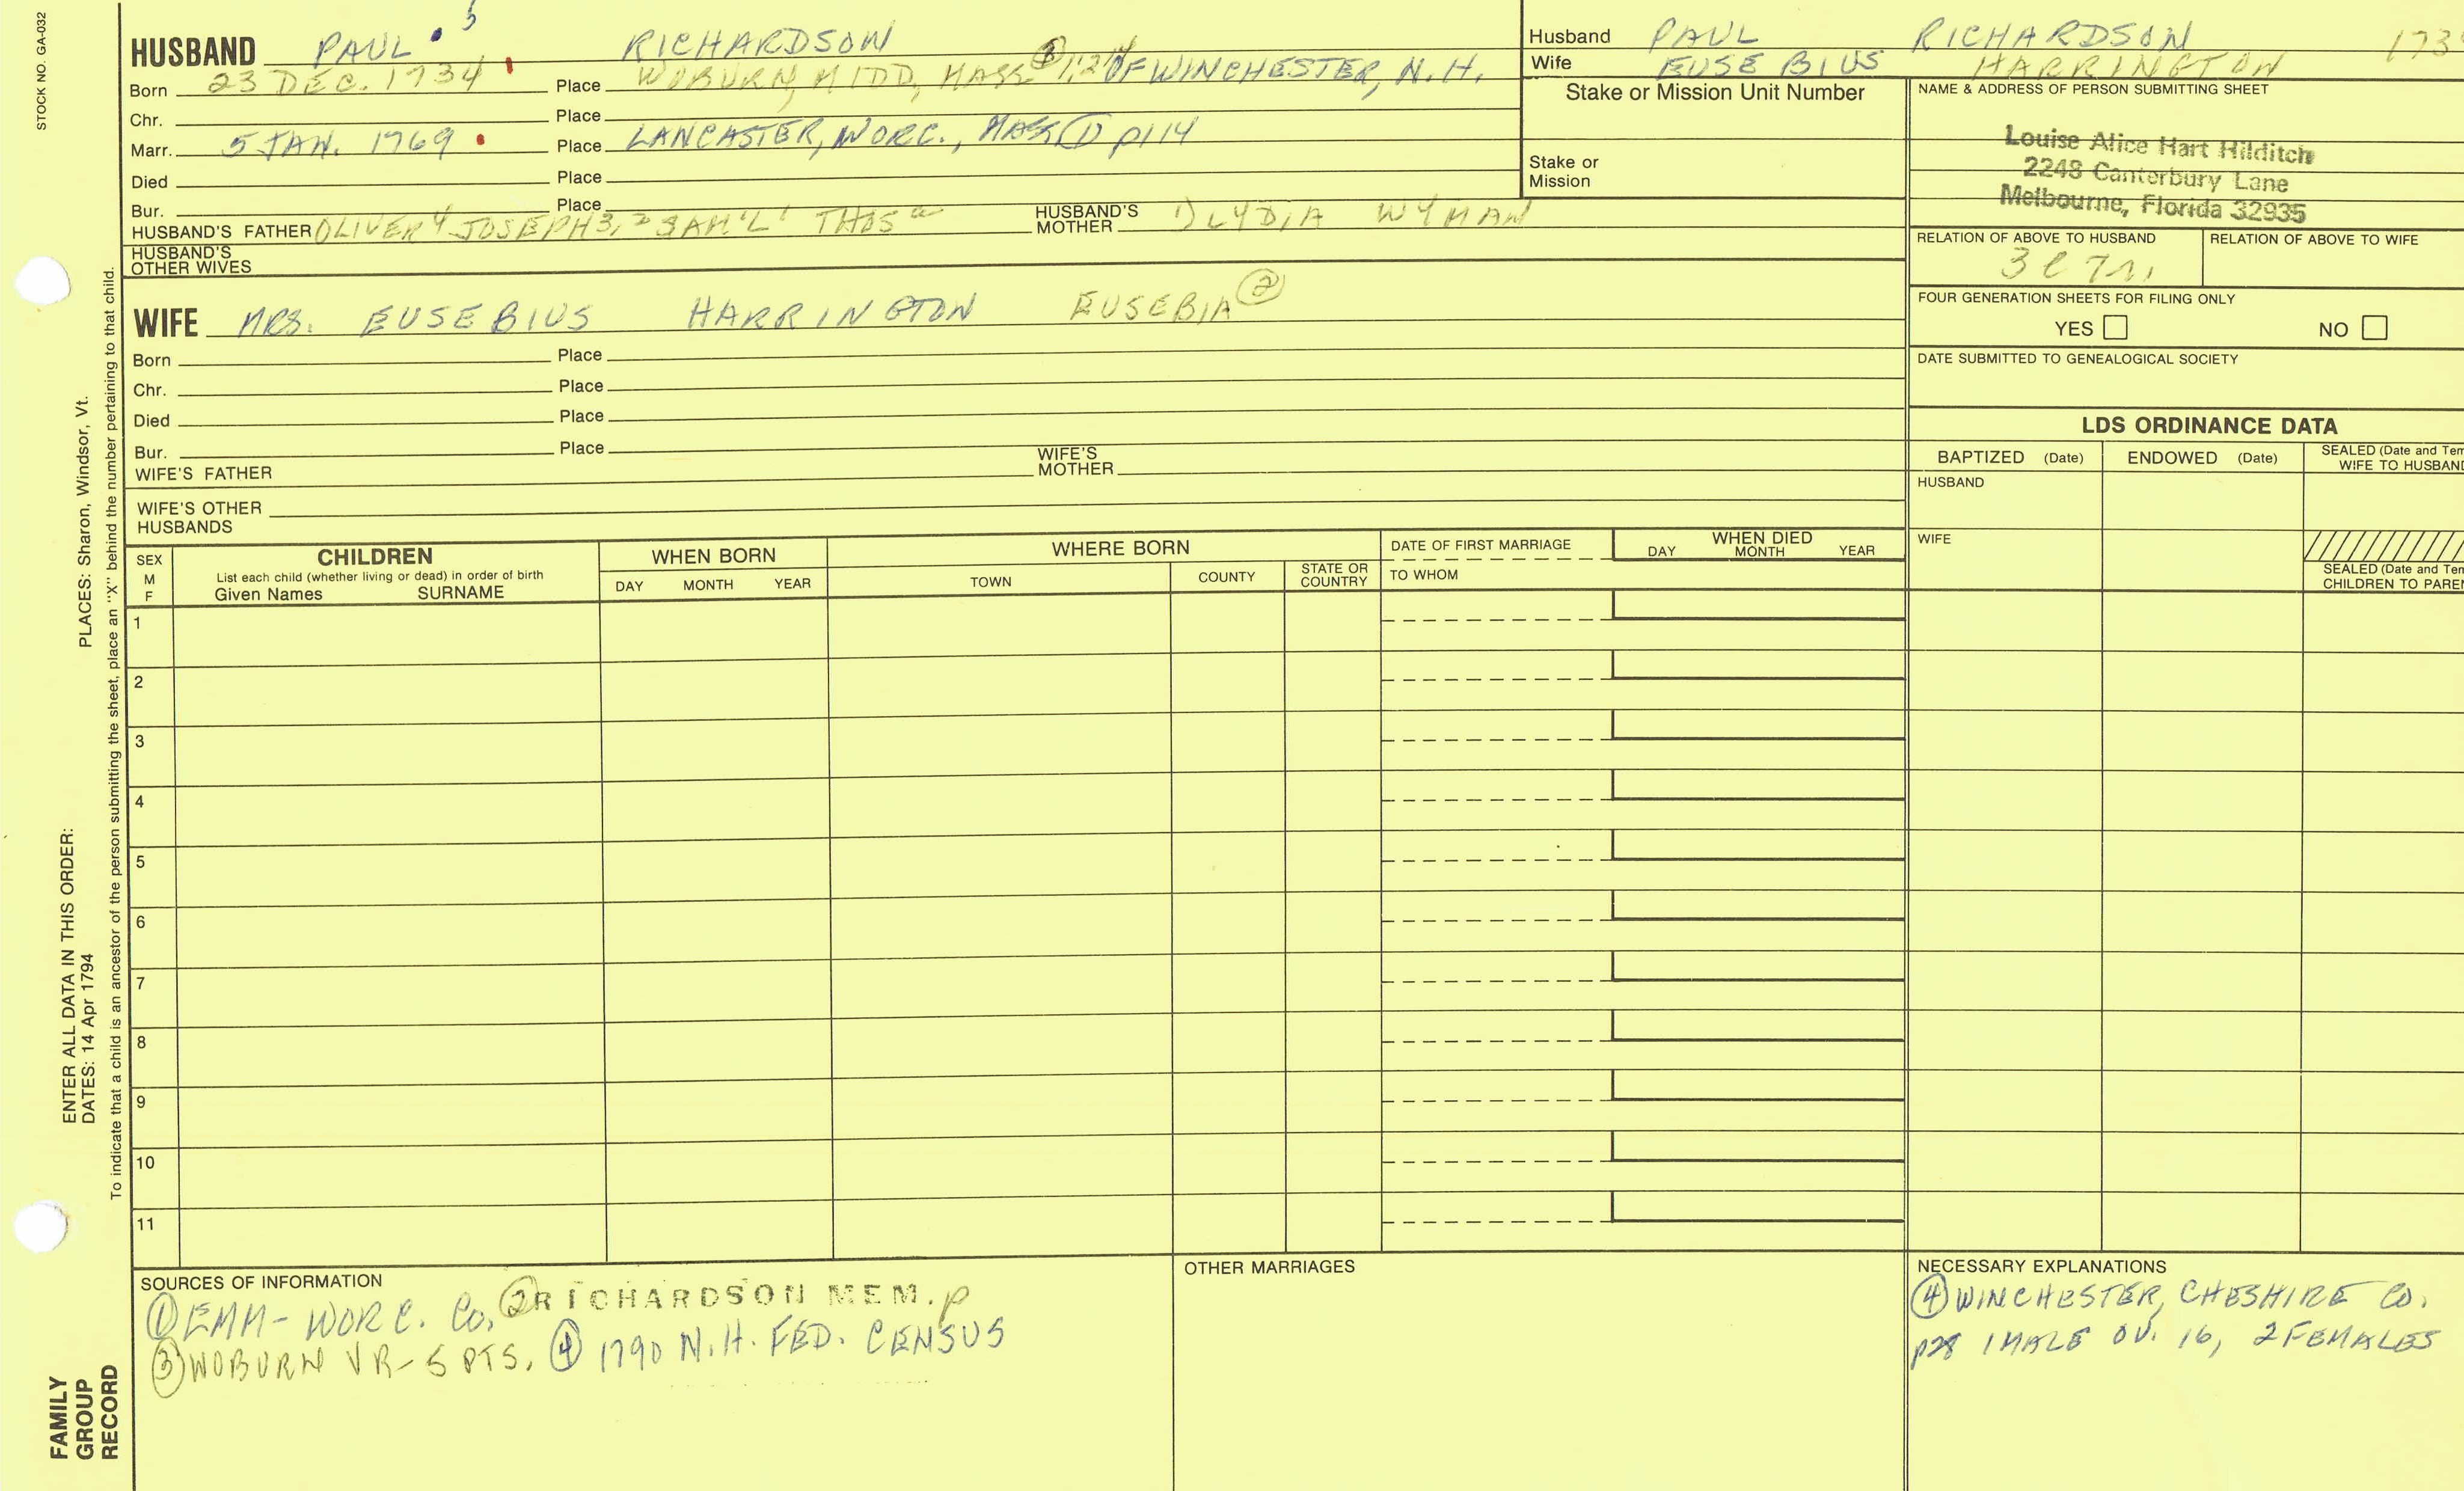 STOCK NO. GA-032
HUSBAND PAUL 5 RICHARDSON
Born 23 DEC. 1734 Place WOBURN, MIDD, MASS ③ 1,2,4 OF WINCHESTER, N.H.
Chr. Place
Marr. 5 JAN. 1769 Place LANCASTER, WORC., MASS ① p114
Died Place
Bur. Place
HUSBAND'S FATHER OLIVER 4 JOSEPH 3, 2 SAM'L' THOS HUSBAND'S MOTHER 1) LYDIA WYMAN
HUSBAND'S OTHER WIVES
WIFE MRS. EUSEBIUS HARRINGTON EUSEBIA ②
Born Place
Chr. Place
Died Place
Bur. Place
WIFE'S FATHER WIFE'S MOTHER
WIFE'S OTHER HUSBANDS
Husband PAUL RICHARDSON 173
Wife EUSEBIUS HARRINGTON
Stake or Mission Unit Number
Stake or Mission
NAME & ADDRESS OF PERSON SUBMITTING SHEET
Louise Alice Hart Hilditch
2248 Canterbury Lane
Melbourne, Florida 32935
RELATION OF ABOVE TO HUSBAND RELATION OF ABOVE TO WIFE
FOUR GENERATION SHEETS FOR FILING ONLY
YES NO
DATE SUBMITTED TO GENEALOGICAL SOCIETY
LDS ORDINANCE DATA
BAPTIZED (Date) ENDOWED (Date) SEALED (Date and Tem
WIFE TO HUSBAN
HUSBAND
WIFE
SEALED (Date and Tem
CHILDREN TO PARE
SEX
M
F
CHILDREN
List each child (whether living or dead) in order of birth
Given Names SURNAME
WHEN BORN
DAY MONTH YEAR
WHERE BORN
TOWN COUNTY STATE OR COUNTRY
DATE OF FIRST MARRIAGE
TO WHOM
WHEN DIED
DAY MONTH YEAR
1
2
3
4
5
6
7
8
9
10
11
SOURCES OF INFORMATION
① EMM- WORC. Co, ② RICHARDSON MEM. p
③ WOBURN VR- 5 PTS. ④ 1790 N.H. FED. CENSUS
OTHER MARRIAGES
NECESSARY EXPLANATIONS
④ WINCHESTER, CHESHIRE CO.
p28 1 MALE OV. 16, 2 FEMALES
PLACES: Sharon, Windsor, Vt.
ENTER ALL DATA IN THIS ORDER:
DATES: 14 Apr 1794
To indicate that a child is an ancestor of the person submitting the sheet, place an "X" behind the number pertaining to that child.
FAMILY
GROUP
RECORD